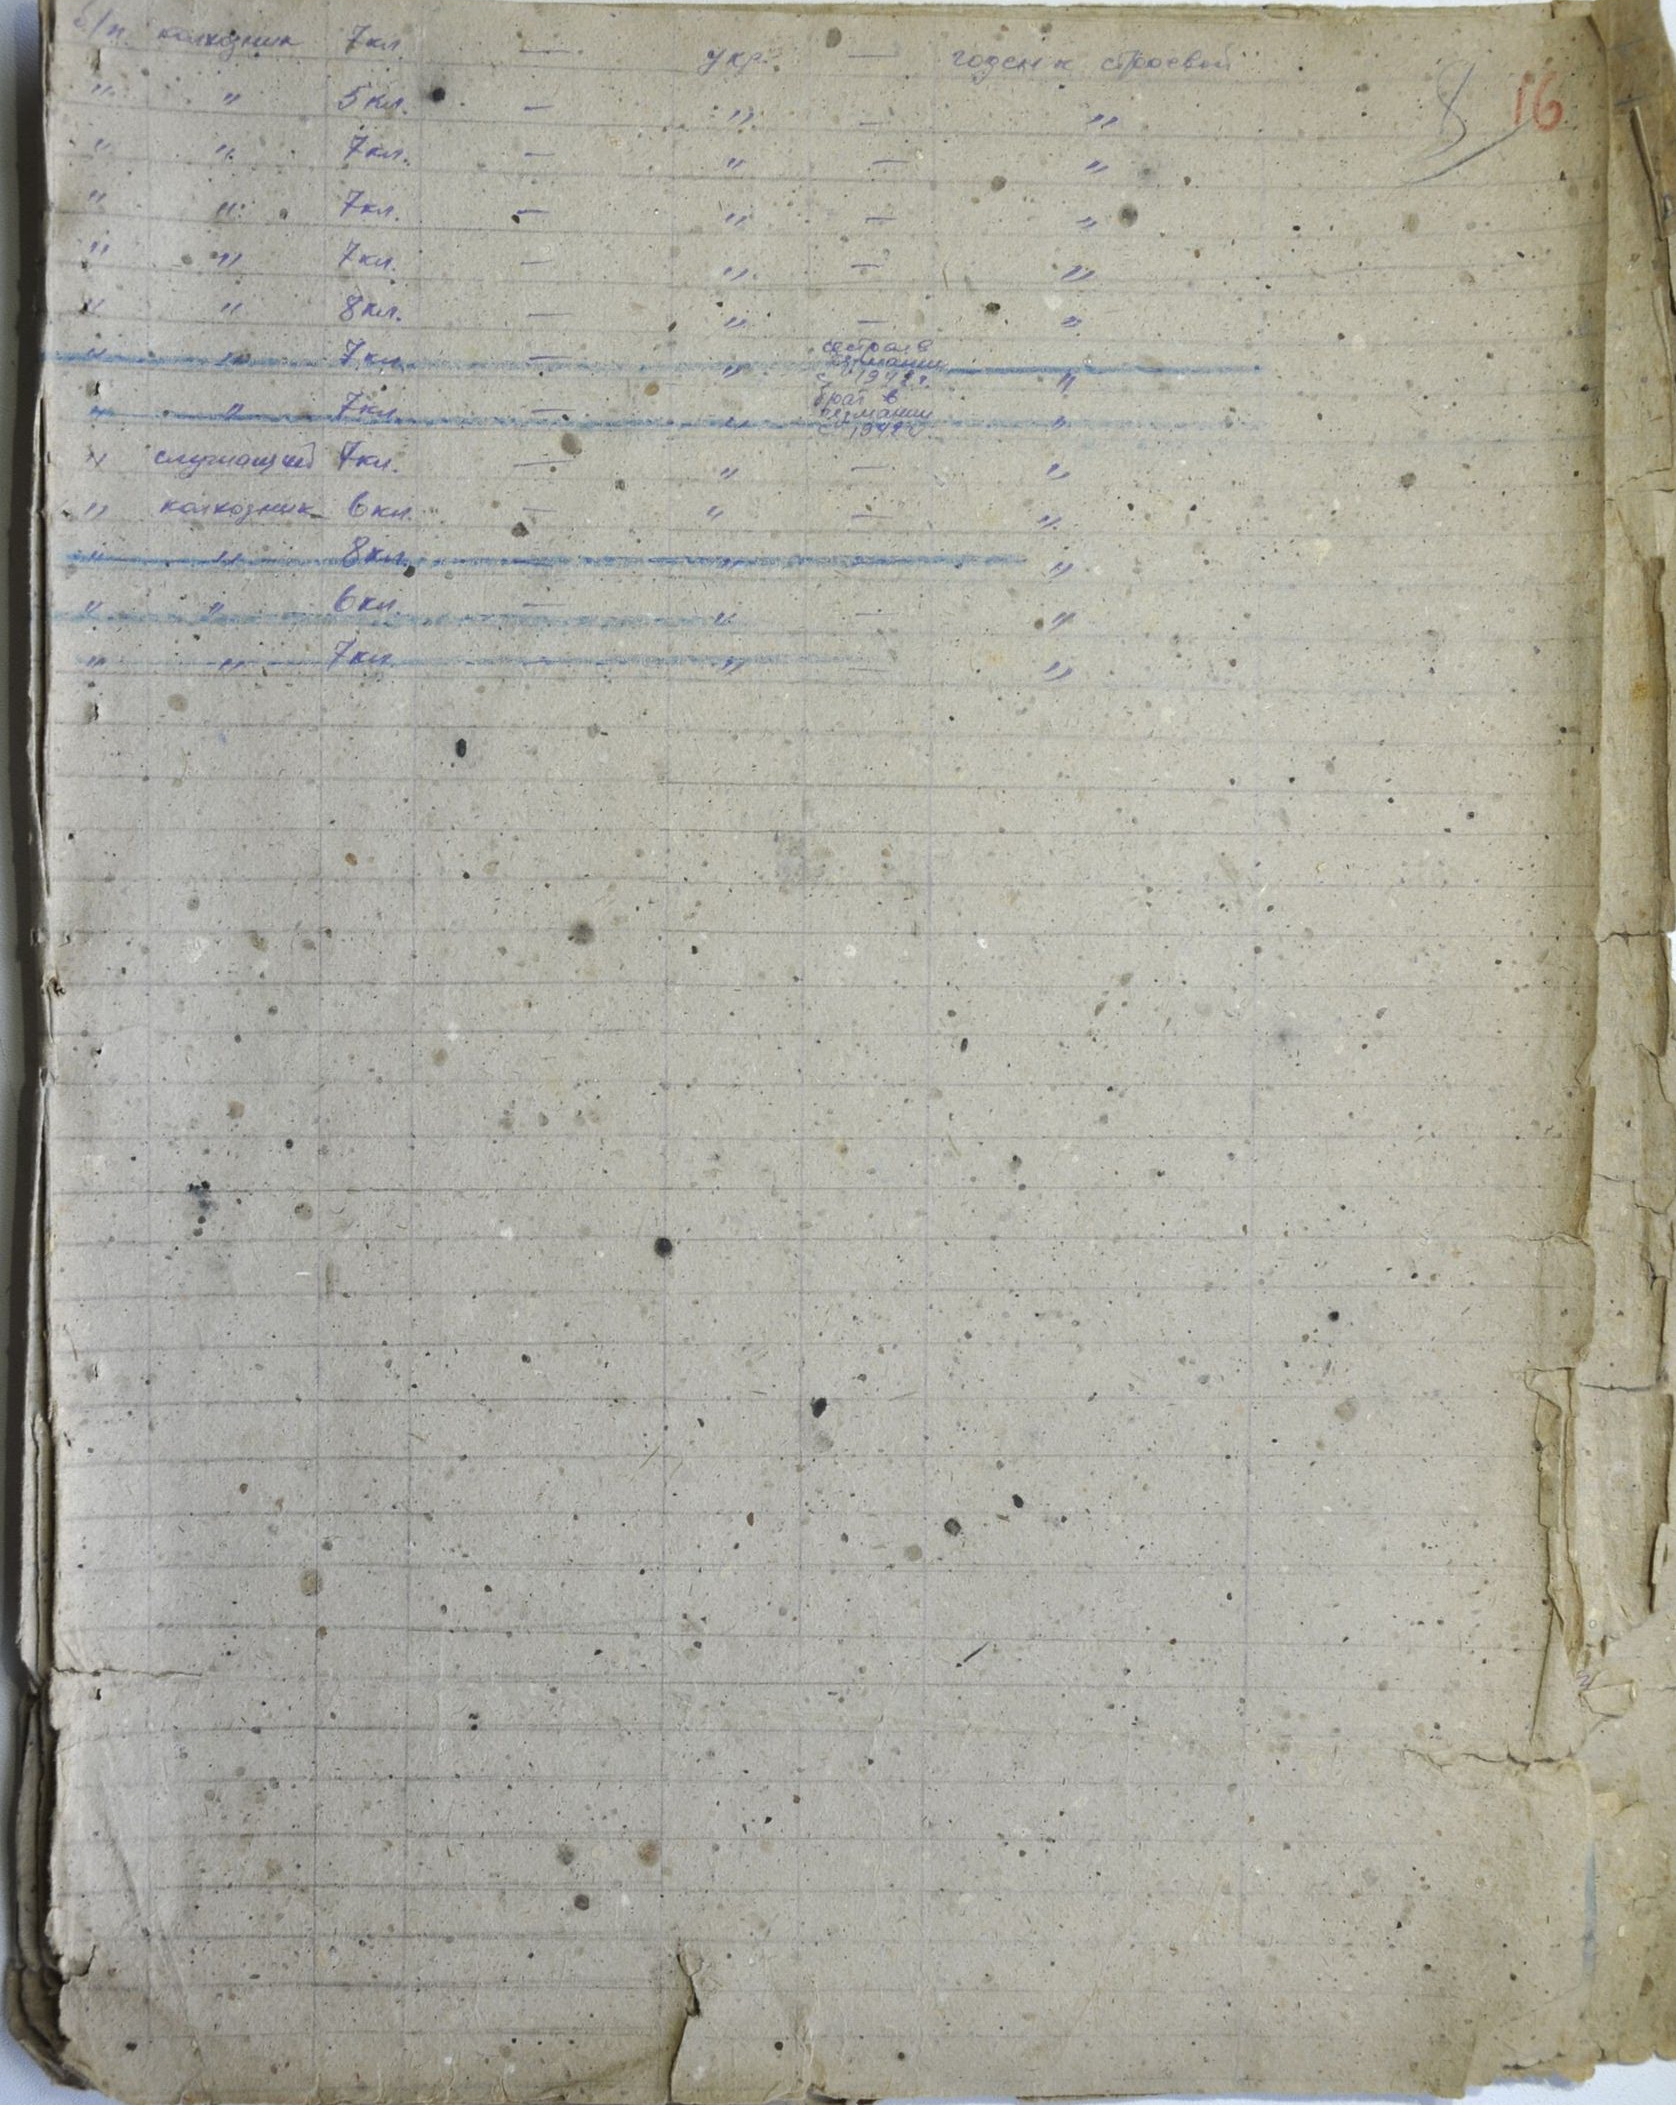 б/п колхозник 7кл — укр. — годен к строевой
8 16
" " 5кл. — " — "
" " 7кл. — " — "
" " 7кл. — " — "
" " 7кл. — " — "
" " 8кл. — " — "
" " 7кл. — " сестра в Германии с 1942г. "
" " 7кл. — " брат в Германии с 1942г. "
" служащий 7кл. — " — "
" колхозник 6кл. — " — "
" " 8кл. — " — "
" " 6кл. — " — "
" " 7кл. — " — "